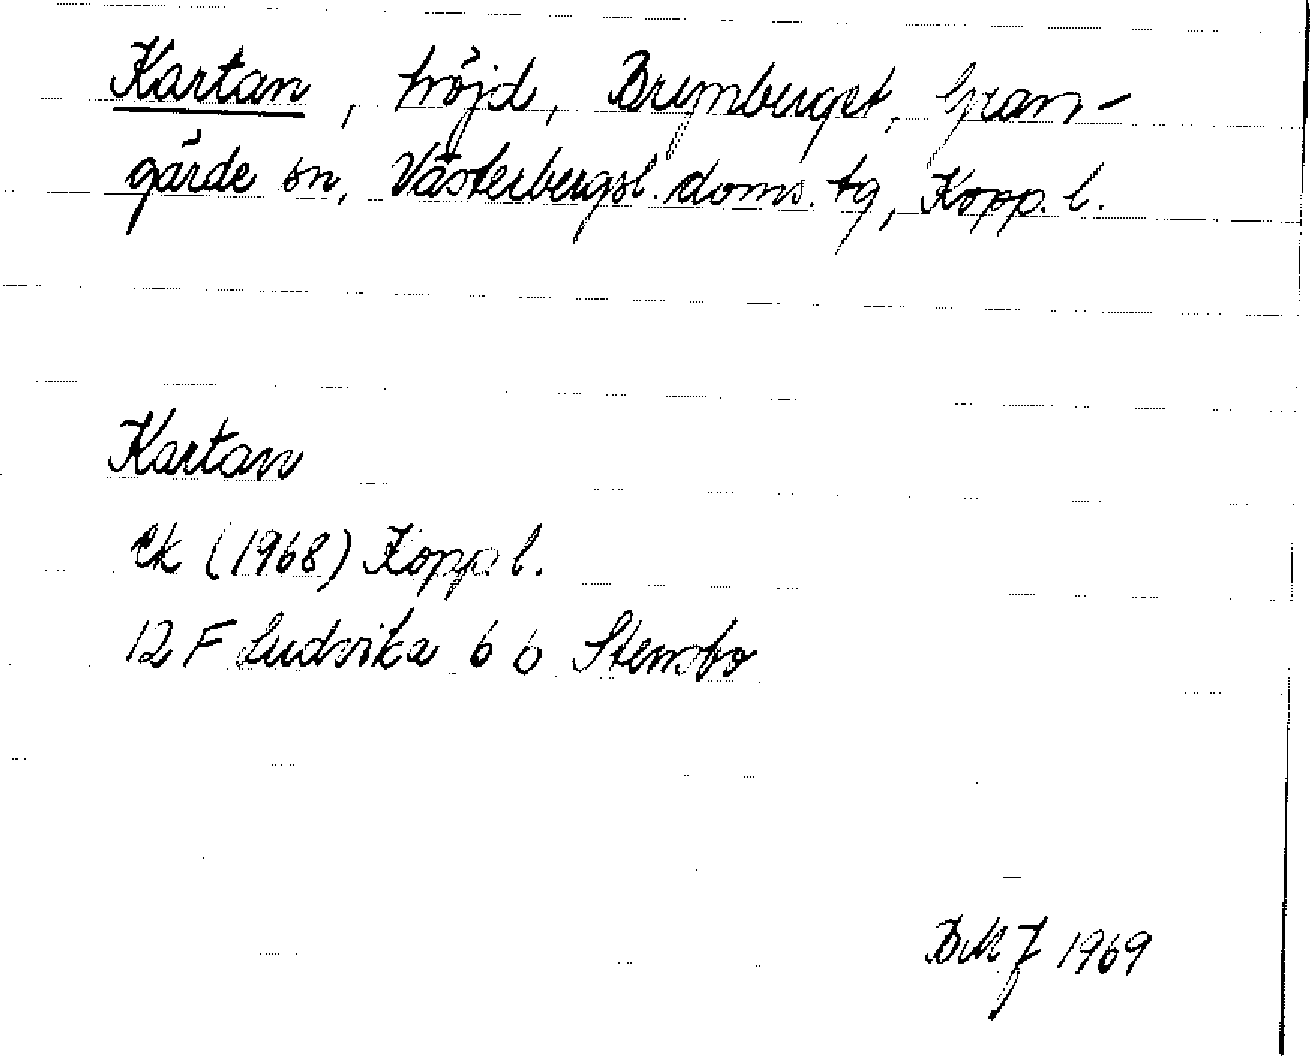 Kartan, höjd, Brymberget, Gran-
gärde sn, Västerbergsl. doms. tg, Kopp. l.
Kartan
ek (1968) Kopp. l.
12 F Ludvika 6 b Stensbo
BMJ 1969